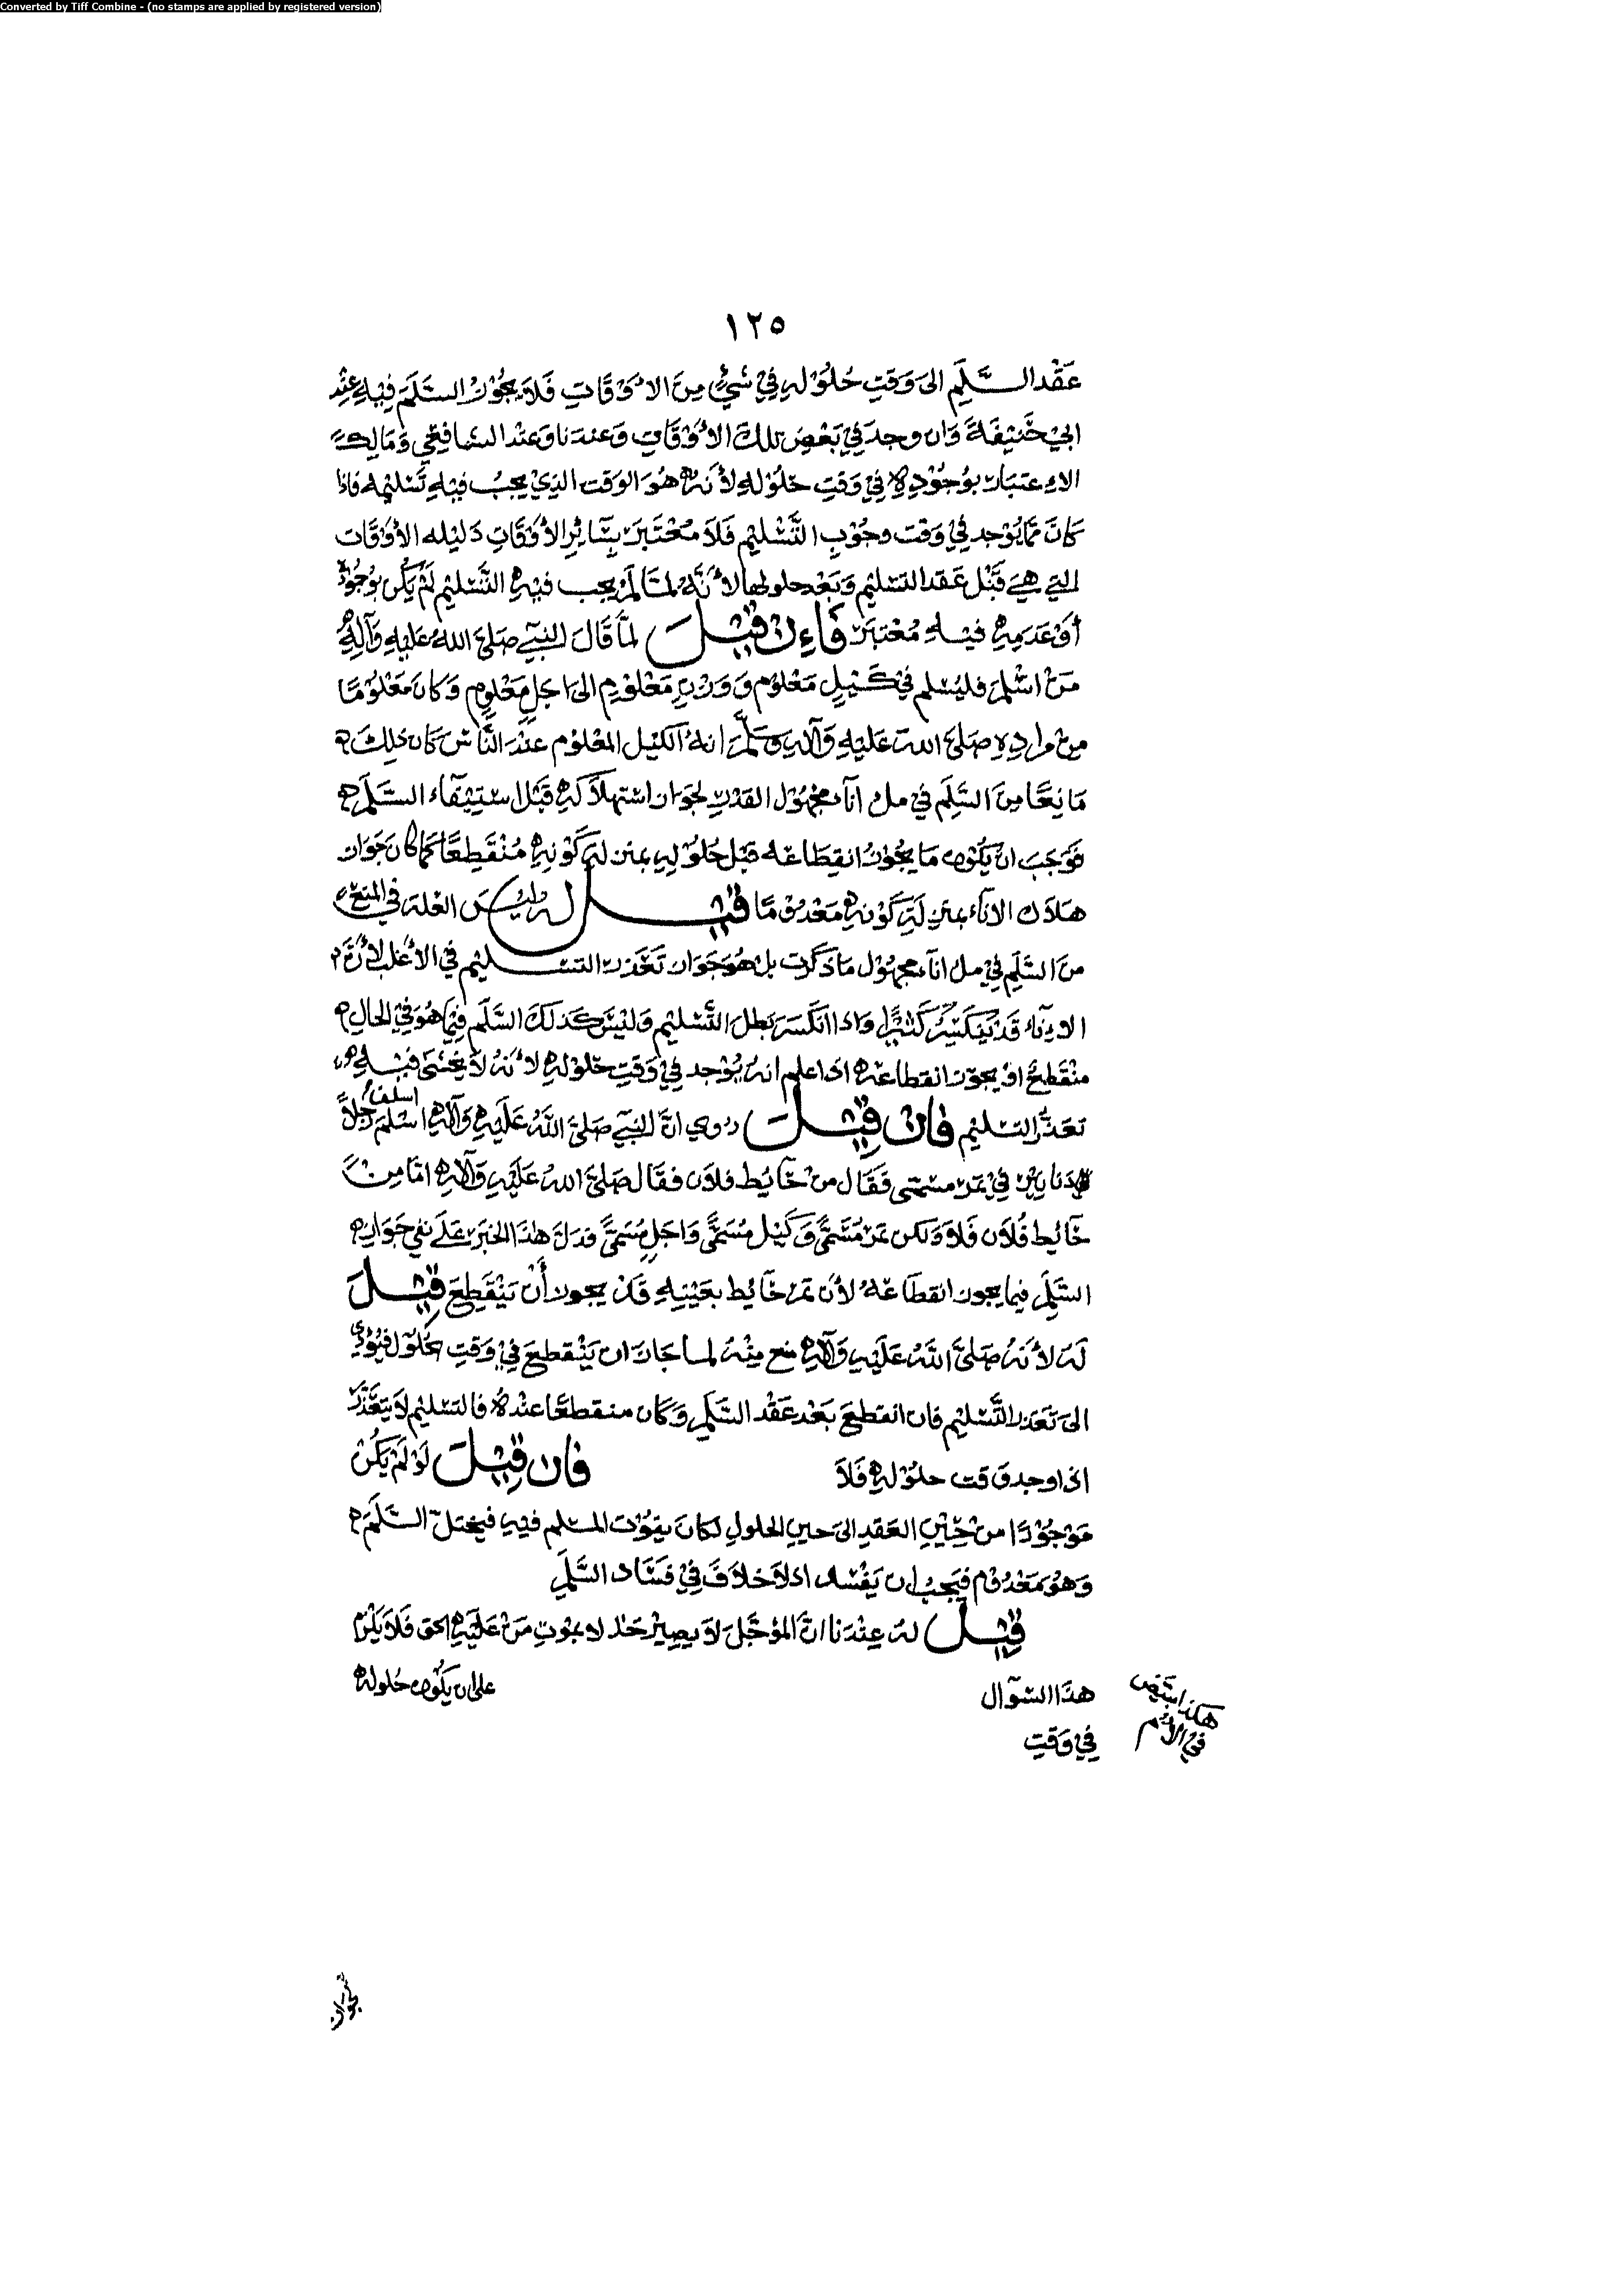 Converted by Tiff Combine - (no stamps are applied by registered version)
١٢٥
عقد السَّلَم الى وقت حُلُوله في شيءٍ من الأوقات فلا يجُوز السَّلَم فيه عند
ابي حنيفة وان وجد في بعض تلك الأوقات وعندنا وعند الشافعي ومالك
الاعتبار بوُجُوده في وقت حلُوله لأنه هو الوقت الذي يجبُ فيه تسليمه فاذا
كان ممايُوجد في وقت وجُوب التَّسْليم فلا مُعْتَبَر بسَّائر الأوقات دَليله الأوقات
التي هي قَبْل عَقد التسليم وبَعْد حلولها لأنَّهُ لمَّا لَمْ يجب فيه التَّسليم لَمْ يكُن بوُجُوده
أوْ عَدَمِه فيه مُعْتَبَر فَإن قيْل لمَّا قَالَ النبي صَلى اللهُ عليه وَآله
مَنْ اسْلَم فليُسْلم في كَيْلٍ مَعْلُوم وَوَزْنٍ مَعْلُوم الى اجلٍ مَعْلوم وَكان مَعْلُومًا
من مراده صَلى الله عَليه وَآله وسَلَّم انه الكيْل المعْلُوم عنْدَ النَّاس كان ذلك
مَانِعًا منَ السَّلَم في ملء انآء مجهُول القدر لجوَاز اسْتهلاَكه قَبْل استيْفَاء السَّلَم
فوَجَبَ ان يَكُون مَا يجُوز انقِطَاعه قبْل حُلُوله بمنزلة كَوْنه مُنْقَطِعًا كما كان جَوَاز
هلاَك الاناء بمنزلة كوْنه مَعْدُومًا قيْل له ليْسَ العلة في المنْع
منَ السَّلَم في ملء انآء مجهُول مَا ذكرت بل هُوَ جَوَاز تَعَذر التسليم في الأغلب لأنَّ
الاناء قَد يَنكَسِرُ كثيرًا وَاذا انكسَر بطل التَّسْليم وَليْسَ كذلك السَّلَم فيما هُوَ في الحال
منْقَطعٌ اوْ يجوز انقطاعه اذا علم انه يُوْجد في وَقت حلوْله لأنهُ لاَ يخشى فيه
تعَذُّر التسليم فان قيْل روي انَّ النبي صَلى اللهُ عَلَيه وَآله اسْلَمَ رَجُلاً
اسلف
دنانير في تمر مسمى فقَال من حَآئط فلان فقَال صَلى اللهُ عَلَيه وَآله امّا منْ
حَآئط فُلاَن فَلاَ وَلكن تمر مُسَمَّى وَكيْل مُسَمَّى وَاجل مُسَمَّى فدلَّ هٰذا الخبَر عَلَى نفي جَوَاز
السَّلَم فيما يجوز انقطَاعهُ لأن تمر حَآئط بعَيْنه قَدْ يجوز أنْ يَنْقَطعَ قيْل
لهُ لأنهُ صَلى اللهُ عَلَيه وَآله منع منْهُ لما جاز ان يَنْقَطعَ في وَقت حُلوله فيُؤدي
الى تعَذر التَّسْليم فان انقطعَ بَعْد عَقْد السَّلَم وَكان منقطعًا عندهُ فالتسْليم لاَ يتعَذر
اذا وجد وقت حلوْله فَلاَ فان قيْل لوْ لَمْ يكُنْ
مَوْجُوْدًا من حيْن العَقْد الى حين الحلول لكان بمَوْت المسْلم فيه فيختَلّ السَّلَم
وَهُوَ مَعْدُوْم فيَجبُ ان يَفْسُد اذ لاَ خلاَفَ في فسَاد السَّلَم
قيْل له عنْدَنا انَّ المُؤجَّل لاَ يصِيْر حَالا بمَوْت مَنْ عَلَيه الحق فَلاَ يَلْزم
هذا السّؤال على ان يكُون حُلوله
في وَقت
هكذا ابيَض
في الأم